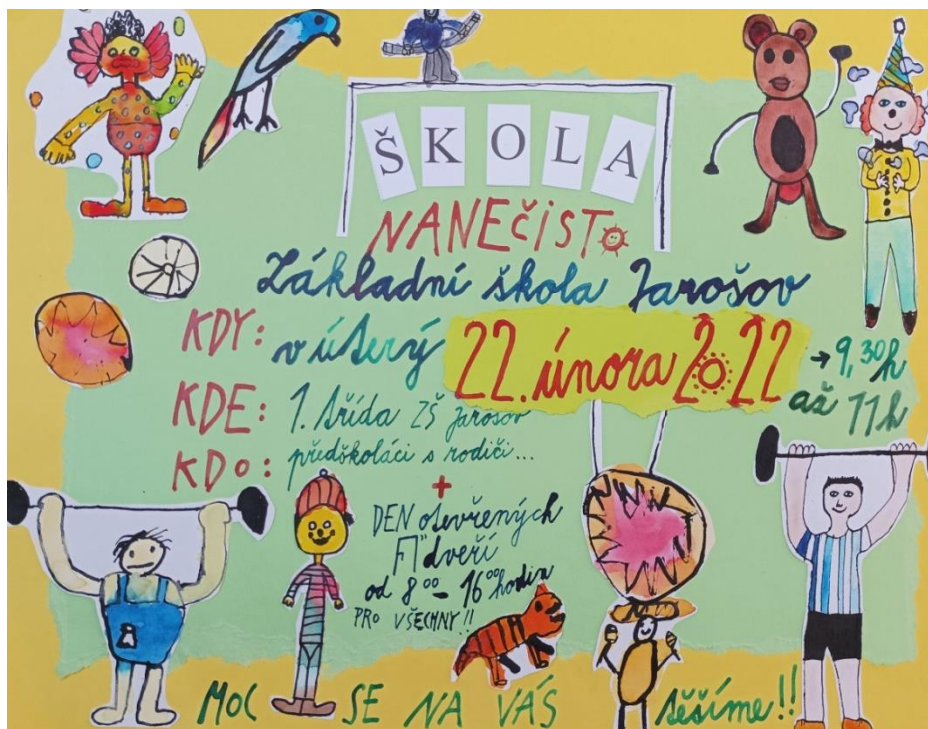 ŠKOLA
NANEČISTO
Základní škola Jarošov
KDY: v úterý 22. února 2022 → 9,30 h
až 11 h
KDE: 1. třída ZŠ Jarošov
KDO: předškoláci s rodiči...
+
DEN otevřených
dveří
od 8⁰⁰ – 16⁰⁰ hodin
PRO VŠECHNY!!
MOC SE NA VÁS těšíme!!